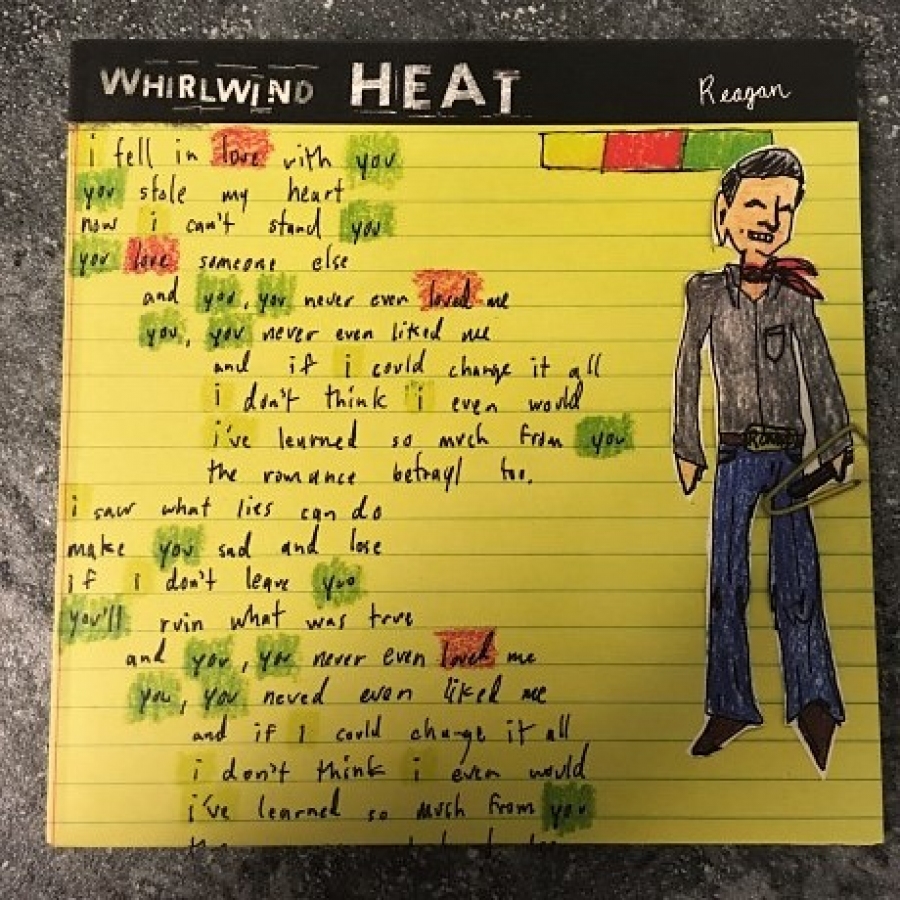 WHIRLWIND HEAT Reagan
i fell in love with you
you stole my heart
now i can't stand you
you love someone else
and you, you never even loved me
you, you never even liked me
and if i could change it all
i don't think i even would
i've learned so much from you
the romance betrayl too.
i saw what lies can do
make you sad and lose
if i don't leave you
you'll ruin what was true
and you, you never even loved me
you, you neved even liked me
and if I could change it all
i don't think i even would
i've learned so much from you